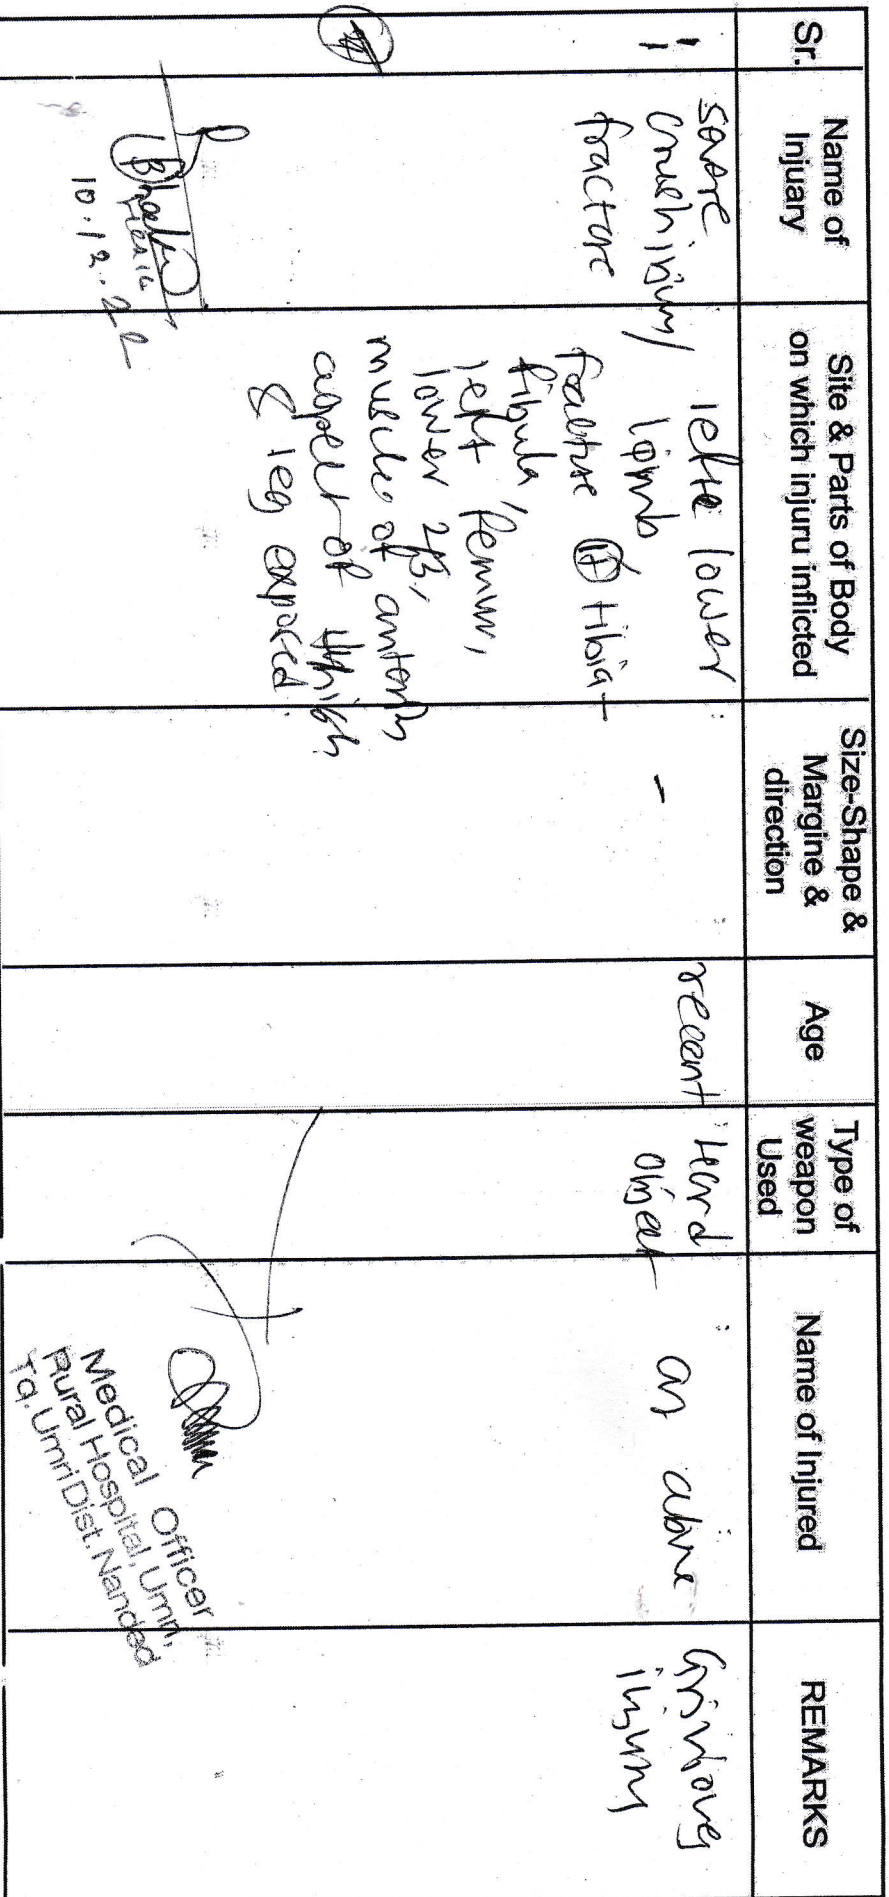 Sr.
Name of
Injuary
Site & Parts of Body
on which injuru inflicted
Size-Shape &
Margine &
direction
Age
Type of
weapon
Used
Name of Injured
REMARKS
crush injury/
fracture
lower
limb
tibia-
fibula, femur,
left
lower 2/3,
muscles of
aspect of thigh
& leg exposed.
-
recent
Hard
object
as above
injury
10.12.22
Medical Officer
Rural Hospital, Umri,
Tq. Umri Dist. Nanded